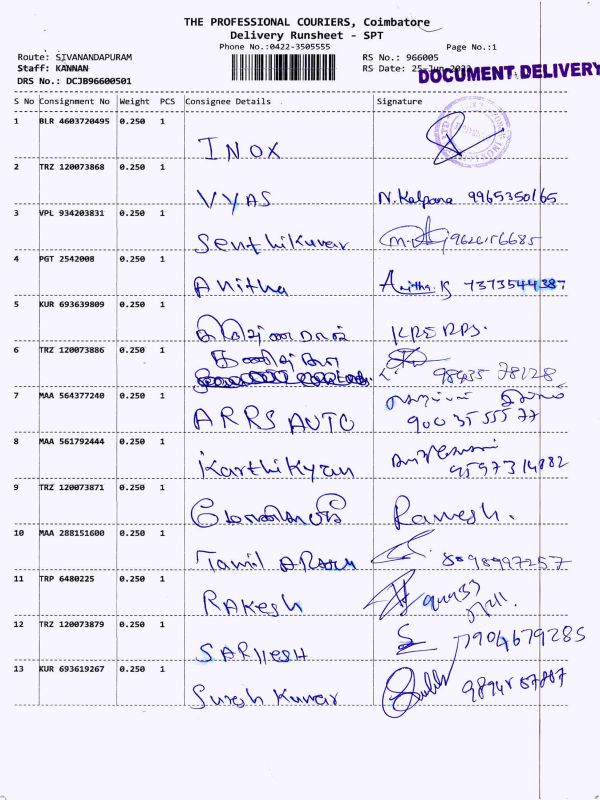 THE PROFESSIONAL COURIERS, Coimbatore
Delivery Runsheet - SPT
Phone No.:0422-3505555
Page No.:1
Route: SIVANANDAPURAM
RS No.: 966005
Staff: KANNAN
RS Date: 25-Jun-2022
DOCUMENT DELIVERY
DRS No.: DCJB96600501
S No Consignment No Weight PCS Consignee Details Signature
1 BLR 4603720495 0.250 1
INOX
2 TRZ 120073868 0.250 1
VYAS N. Kalpana 9965350165
3 VPL 934203831 0.250 1
Senthilkumar
4 PGT 2542008 0.250 1
Anitha Anitha.K 7373544387
5 KUR 693639809 0.250 1
6 TRZ 120073886 0.250 1
98435 78128
7 MAA 564377240 0.250 1
ARRS AUTO 90035 55577
8 MAA 561792444 0.250 1
Karthikyan 9597314882
9 TRZ 120073871 0.250 1
Ramesh.
10 MAA 288151600 0.250 1
Tamil Arasu 8898997257
11 TRP 6480225 0.250 1
RAKesh
12 TRZ 120073879 0.250 1
7904679285
13 KUR 693619267 0.250 1
Suresh Kumar